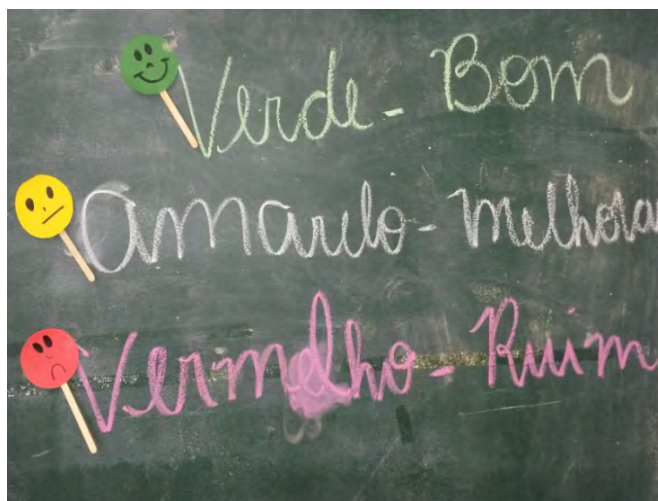 Verde - Bom
Amarelo - Melhorar
Vermelho - Ruim